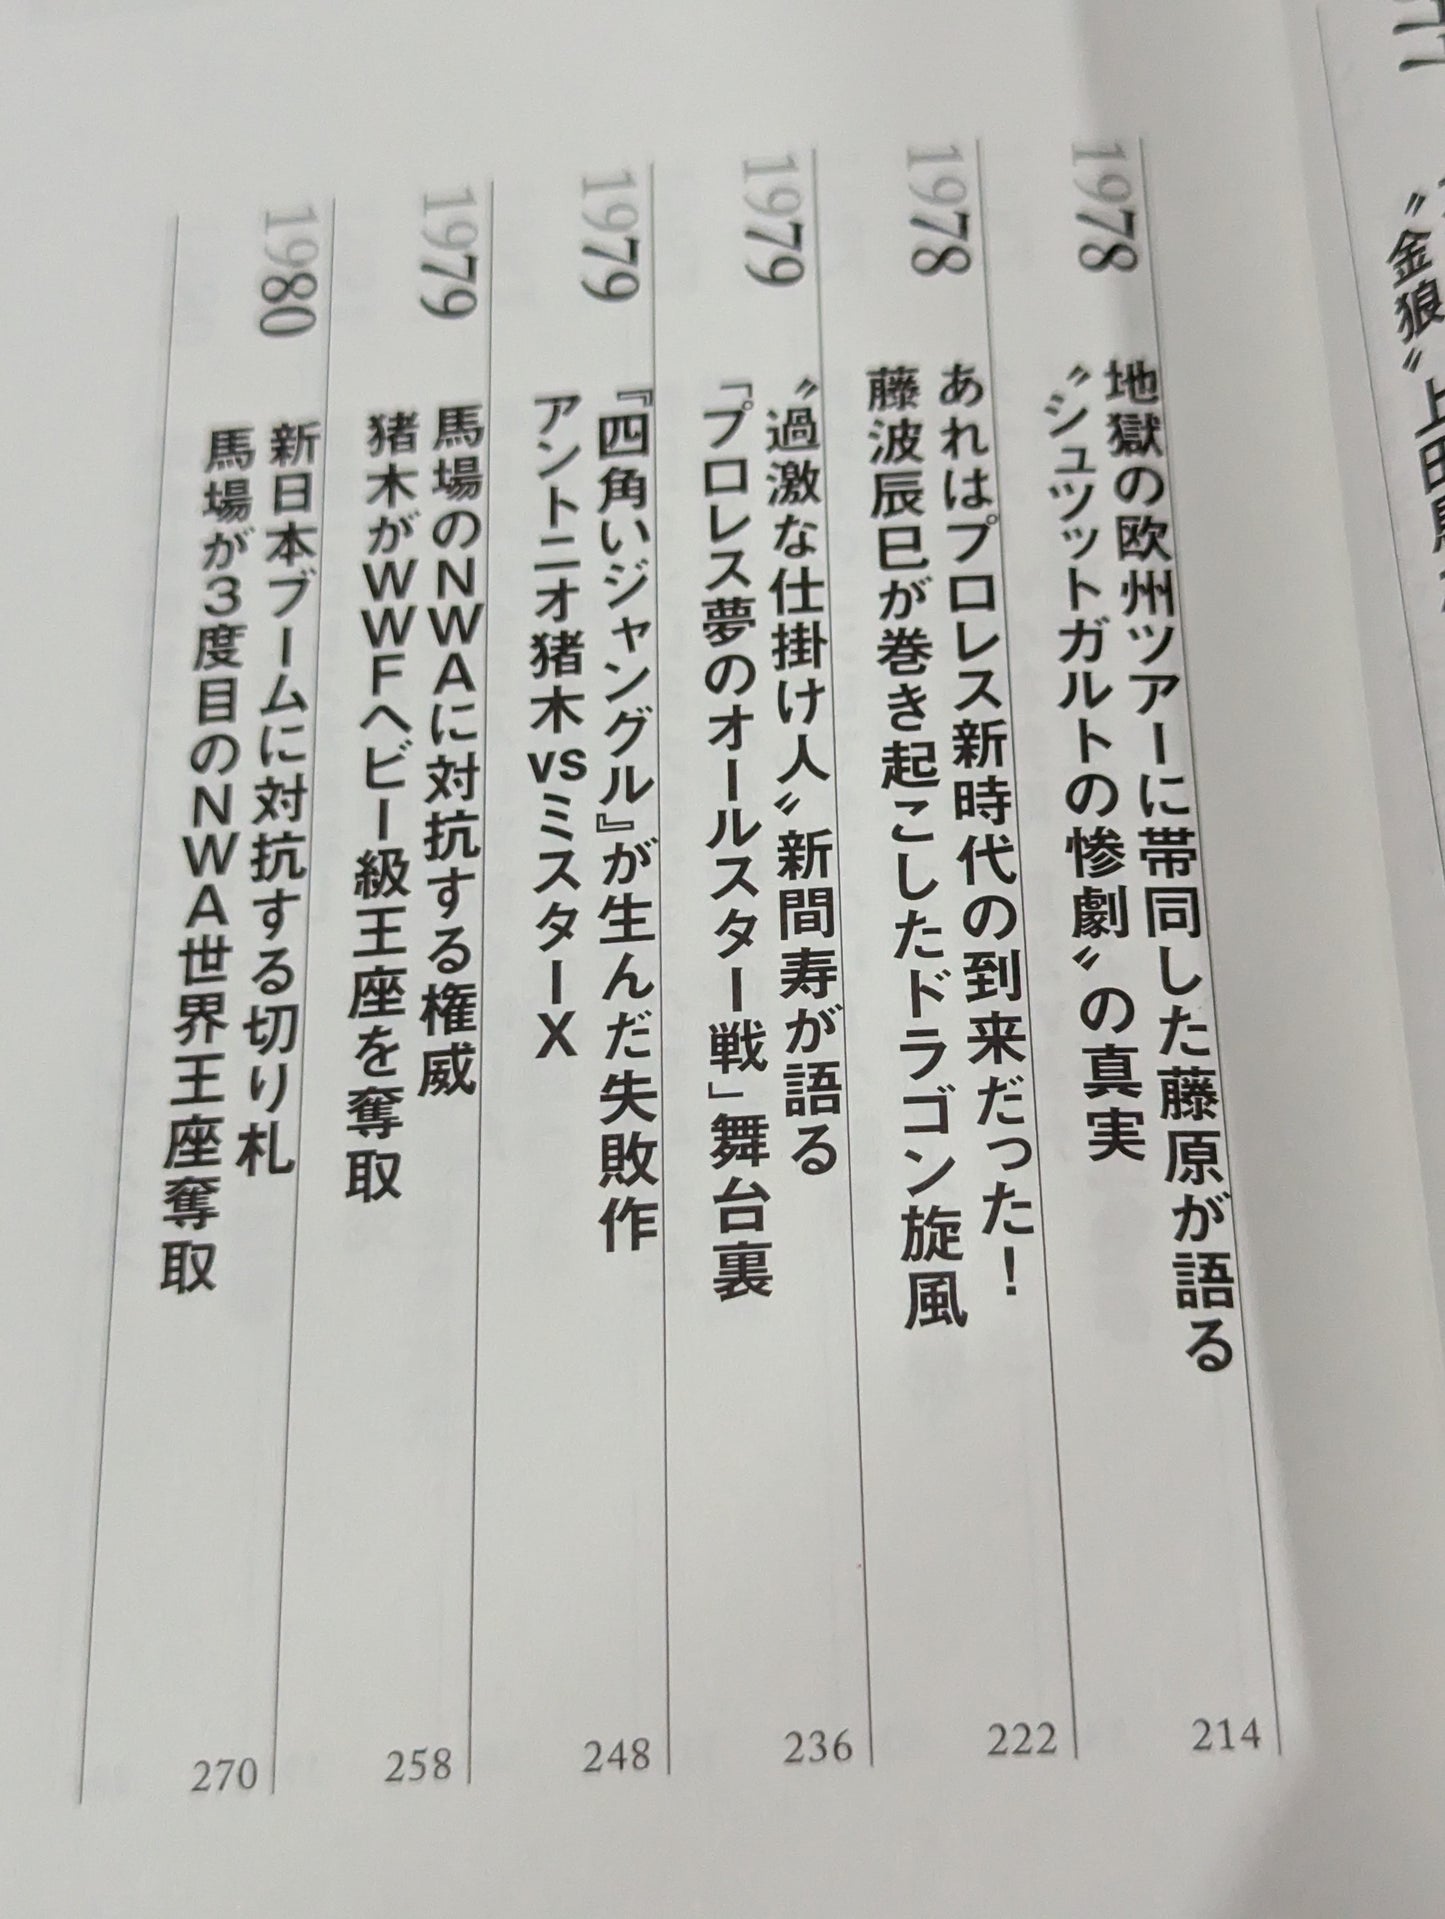 〝金狼〟上田馬
1978
地獄の欧州ツアーに帯同した藤原が語る
〝シュツットガルトの惨劇〟の真実
214
1978
あれはプロレス新時代の到来だった！
藤波辰巳が巻き起こしたドラゴン旋風
222
1979
〝過激な仕掛け人〟新間寿が語る
「プロレス夢のオールスター戦」舞台裏
236
1979
『四角いジャングル』が生んだ失敗作
アントニオ猪木vsミスターX
248
1979
馬場のNWAに対抗する権威
猪木がWWFヘビー級王座を奪取
258
1980
新日本ブームに対抗する切り札
馬場が3度目のNWA世界王座奪取
270